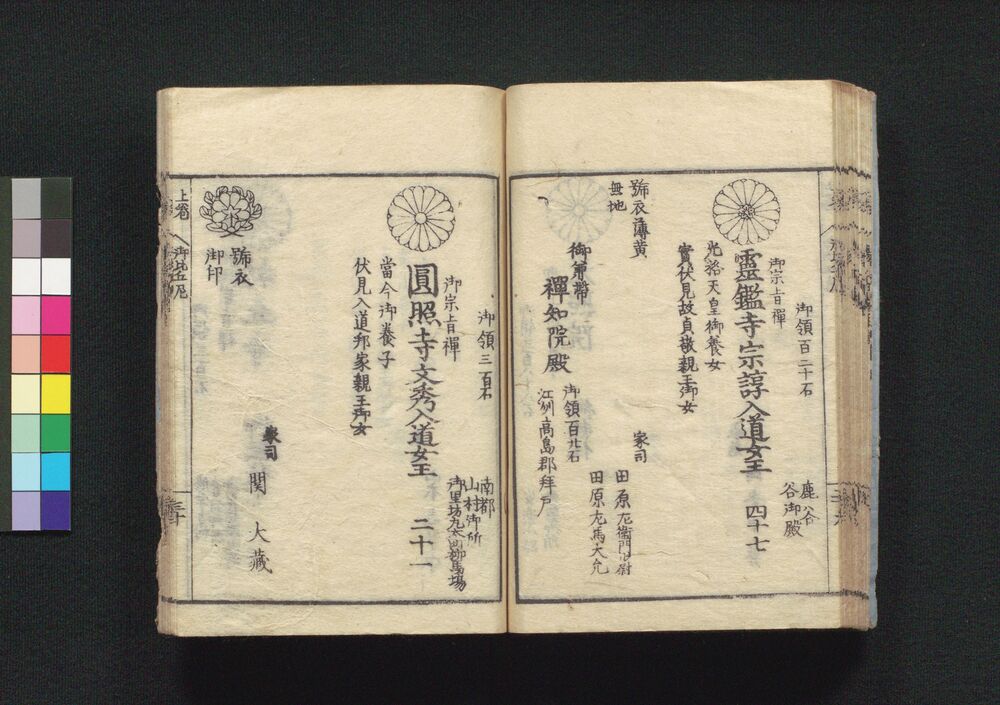 御領百二十石
鹿谷
谷御殿
御宗旨禪
靈鑑寺宗諄入道女王
四十七
光格天皇御養女
實伏見故貞敬親王御女
號衣薄黄
無地
家司
田原左衛門少尉
田原左馬大允
禪知院殿
御領百九石
江州高島郡拜戸
御領三百石
南都
山村御所
御里坊丸太町柳馬場
御宗旨禪
圓照寺文秀入道女王
二十一
當今御養子
伏見入道邦家親王御女
號衣
御印
家司
関大藏
上卷
御比丘尼
三十